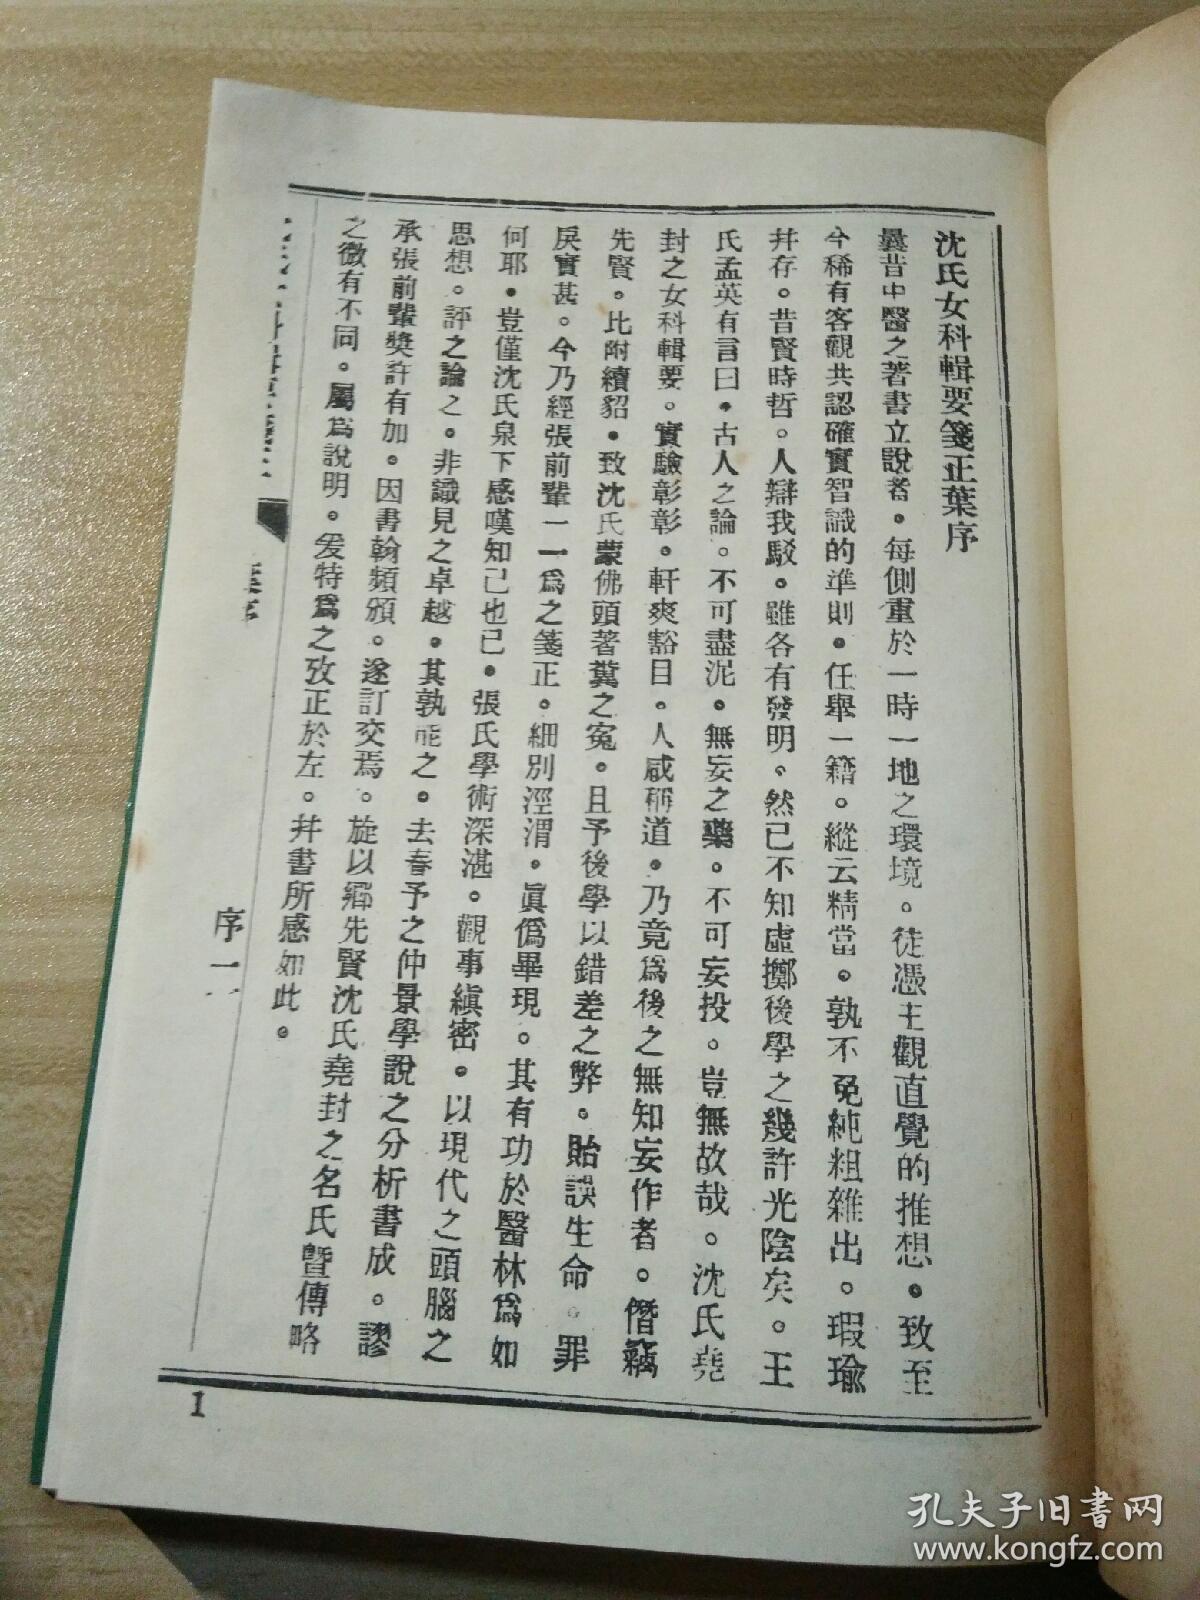 沈氏女科輯要箋正葉序
曩昔中醫之著書立說者。每側重於一時一地之環境。徒憑主觀直覺的推想。致至
今稀有客觀共認確實智識的準則。任舉一籍。縱云精當。孰不免純粗雜出。瑕瑜
幷存。昔賢時哲。人辯我駁。雖各有發明。然已不知虛擲後學之幾許光陰矣。王
氏孟英有言曰。古人之論。不可盡泥。無妄之藥。不可妄投。豈無故哉。沈氏堯
封之女科輯要。實驗彰彰。軒爽豁目。人咸稱道。乃竟爲後之無知妄作者。僭竊
先賢。比附續貂。致沈氏蒙佛頭著糞之寃。且予後學以錯差之弊。貽誤生命。罪
戾實甚。今乃經張前輩一一爲之箋正。細別涇渭。眞僞畢現。其有功於醫林爲如
何耶。豈僅沈氏泉下感嘆知己也已。張氏學術深湛。觀事縝密。以現代之頭腦之
思想。評之論之。非識見之卓越。其孰能之。去春予之仲景學說之分析書成。謬
承張前輩奬許有加。因書翰頻頒。遂訂交焉。旋以鄉先賢沈氏堯封之名氏暨傳略
之徵有不同。屬爲說明。爰特爲之攷正於左。幷書所感如此。
序一
1
孔夫子旧书网
www.kongfz.com